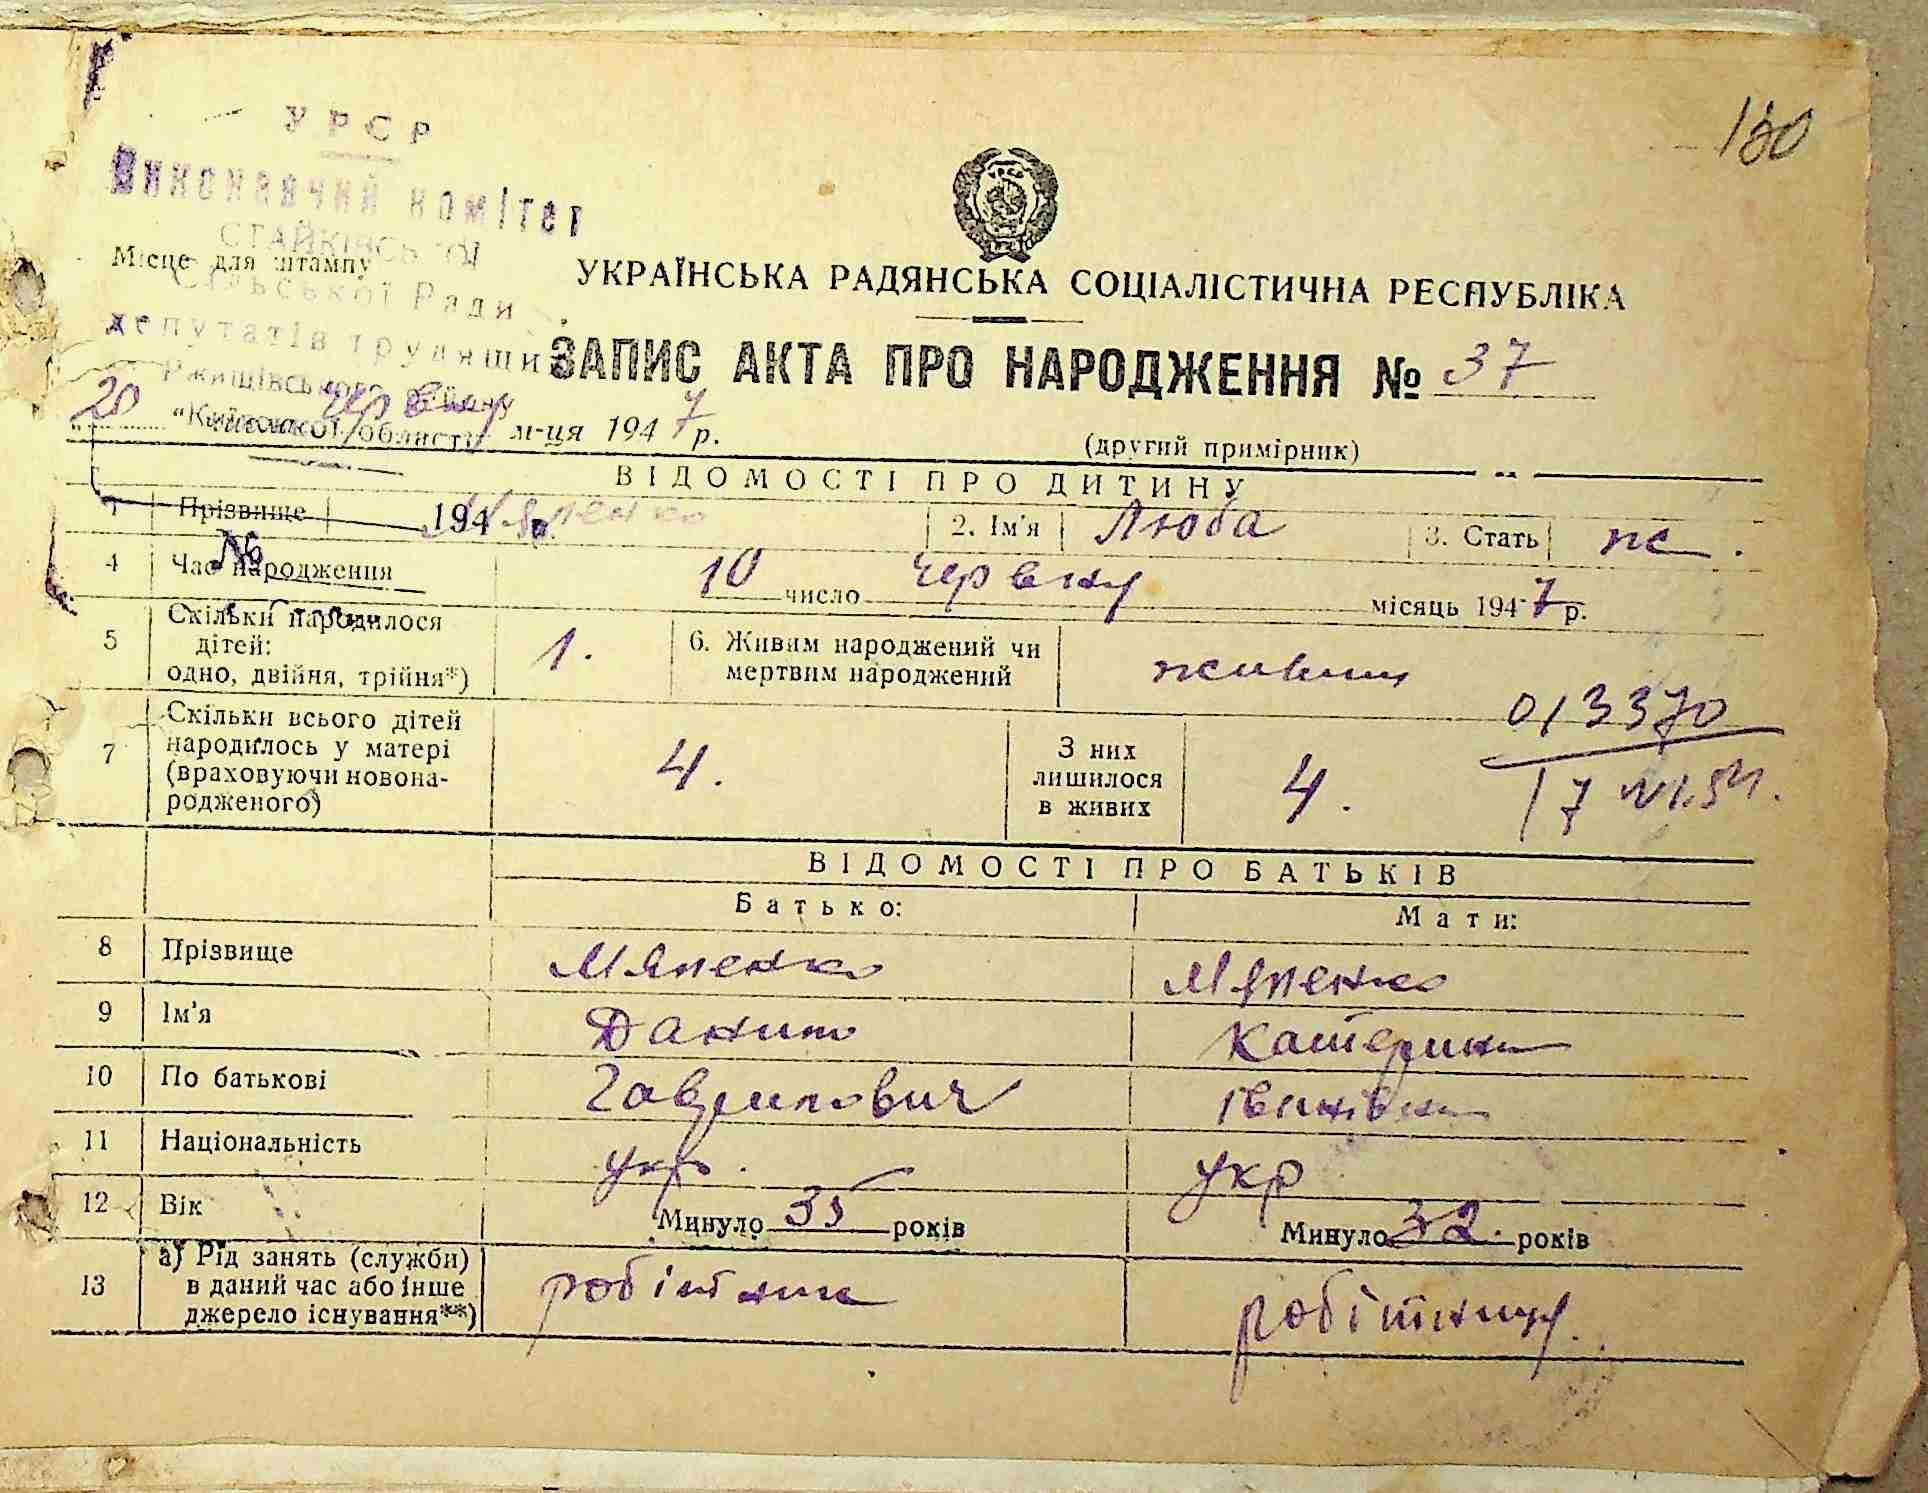 180
УРСР
Виконавчий комітет
СТАЙКІВСЬКОЇ
Місце для штампу
Сільської Ради
депутатів трудящих
Ржищівського району
Київської області
УРСР
УКРАЇНСЬКА РАДЯНСЬКА СОЦІАЛІСТИЧНА РЕСПУБЛІКА
ЗАПИС АКТА ПРО НАРОДЖЕННЯ № 37
"20" червня м-ця 1947 р.
(другий примірник)
ВІДОМОСТІ ПРО ДИТИНУ
1 Прізвище 194 р. 2. Ім'я Люба 3. Стать ж.
№
4 Час народження 10 число червня місяць 1947 р.
5 Скільки народилося
дітей:
одно, двійня, трійня*) 1. 6. Живим народжений чи
мертвим народжений живим
013370
17 VI.54.
7 Скільки всього дітей
народилось у матері
(враховуючи новона-
родженого) 4. З них
лишилося
в живих 4.
ВІДОМОСТІ ПРО БАТЬКІВ
Батько: Мати:
8 Прізвище Мяленко Мяленко
9 Ім'я Данило Катерина
10 По батькові Гаврилович Іванівна
11 Національність укр. укр
12 Вік Минуло 35 років Минуло 32. років
13 а) Рід занять (служби)
в даний час або інше
джерело існування**) робітник робітниця.